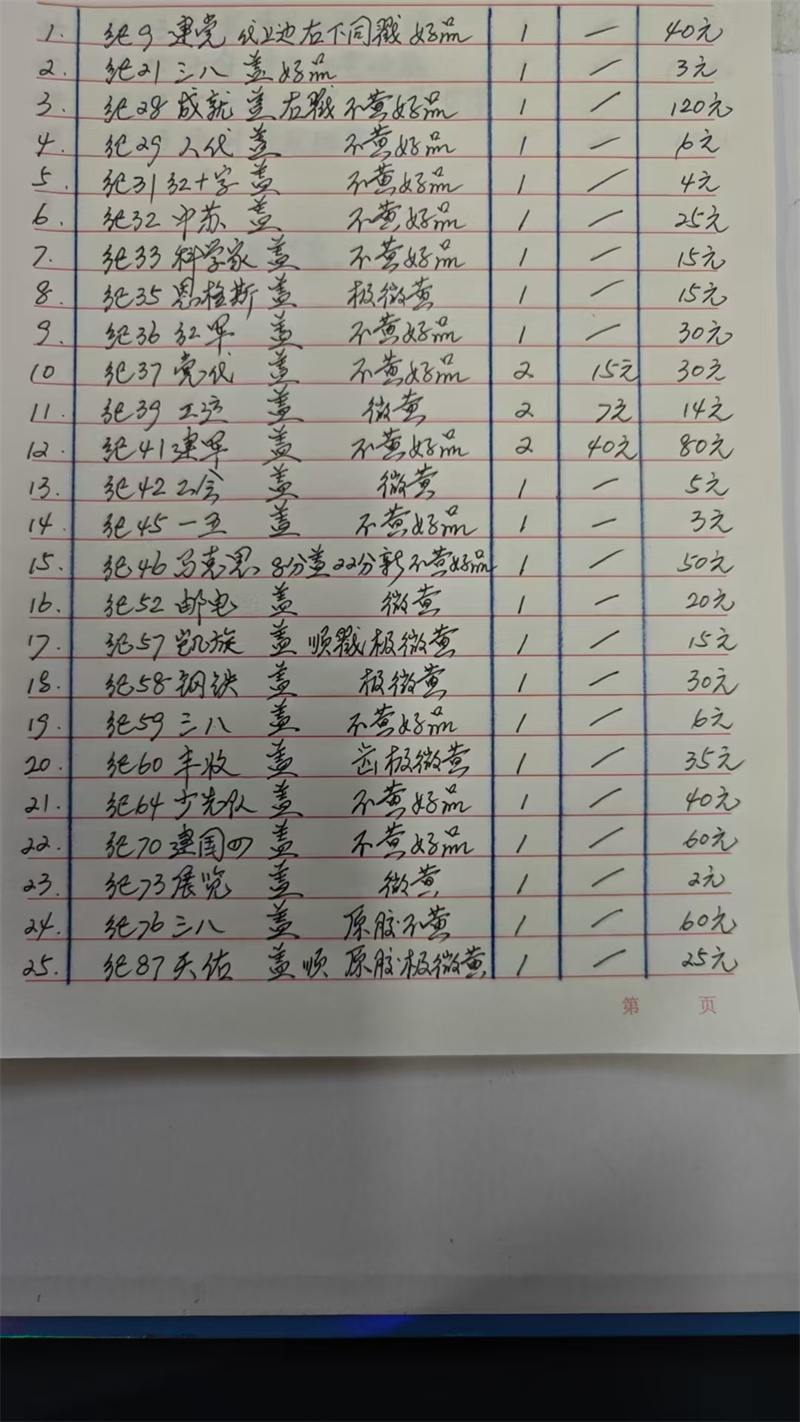 1. 纪9 建党 代上边右下同戳 好品 1 — 40元
2. 纪21 三八 盖好品 1 — 3元
3. 纪28 成就 盖右戳不黄好品 1 — 120元
4. 纪29 人代 盖 不黄好品 1 — 6元
5. 纪31 红十字 盖 不黄好品 1 — 4元
6. 纪32 中苏 盖 不黄好品 1 — 25元
7. 纪33 科学家 盖 不黄好品 1 — 15元
8. 纪35 恩格斯 盖 极微黄 1 — 15元
9. 纪36 红军 盖 不黄好品 1 — 30元
10 纪37 党代 盖 不黄好品 2 15元 30元
11. 纪39 工运 盖 微黄 2 7元 14元
12. 纪41 建军 盖 不黄好品 2 40元 80元
13. 纪42 工会 盖 微黄 1 — 5元
14. 纪45 一五 盖 不黄好品 1 — 3元
15. 纪46 马克思 8分盖22分新不黄好品 1 — 50元
16. 纪52 邮电 盖 微黄 1 — 20元
17. 纪57 凯旋 盖 顺戳极微黄 1 — 15元
18. 纪58 钢铁 盖 极微黄 1 — 30元
19. 纪59 三八 盖 不黄好品 1 — 6元
20. 纪60 丰收 盖 齿极微黄 1 — 35元
21. 纪64 少先队 盖 不黄好品 1 — 40元
22. 纪70 建国四 盖 不黄好品 1 — 60元
23. 纪73 展览 盖 微黄 1 — 2元
24. 纪76 三八 盖 原胶不黄 1 — 60元
25. 纪87 天佑 盖顺 原胶极微黄 1 — 25元
第 页